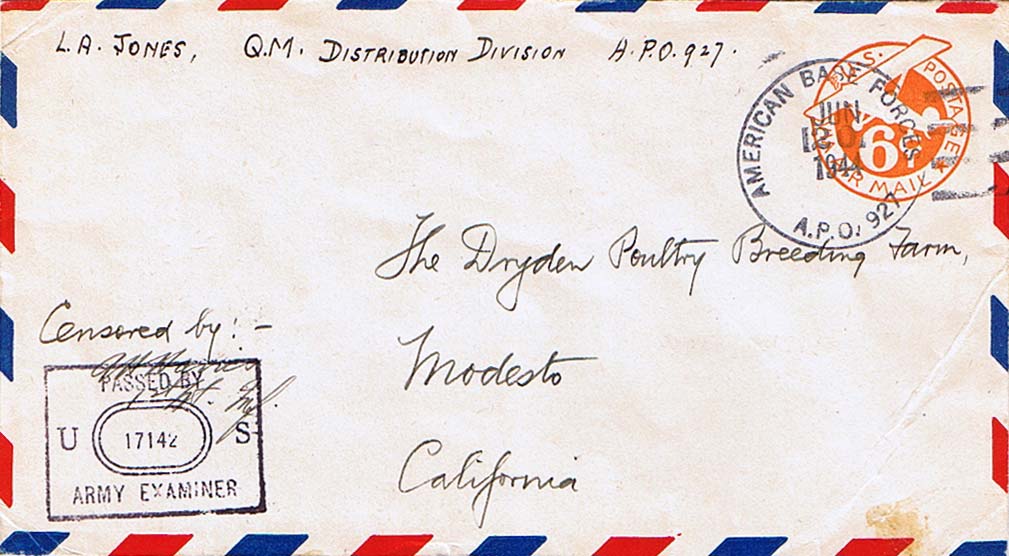 L.A. JONES, Q.M. DISTRIBUTION DIVISION A.P.O. 927.
U.S. POSTAGE
6¢
AIR MAIL
AMERICAN BASE FORCES
JUN
20
1944
A.P.O. 927
The Dryden Poultry Breeding Farm,
Modesto
California
Censored by:-
1st Lt.
PASSED BY
U 17142 S
ARMY EXAMINER